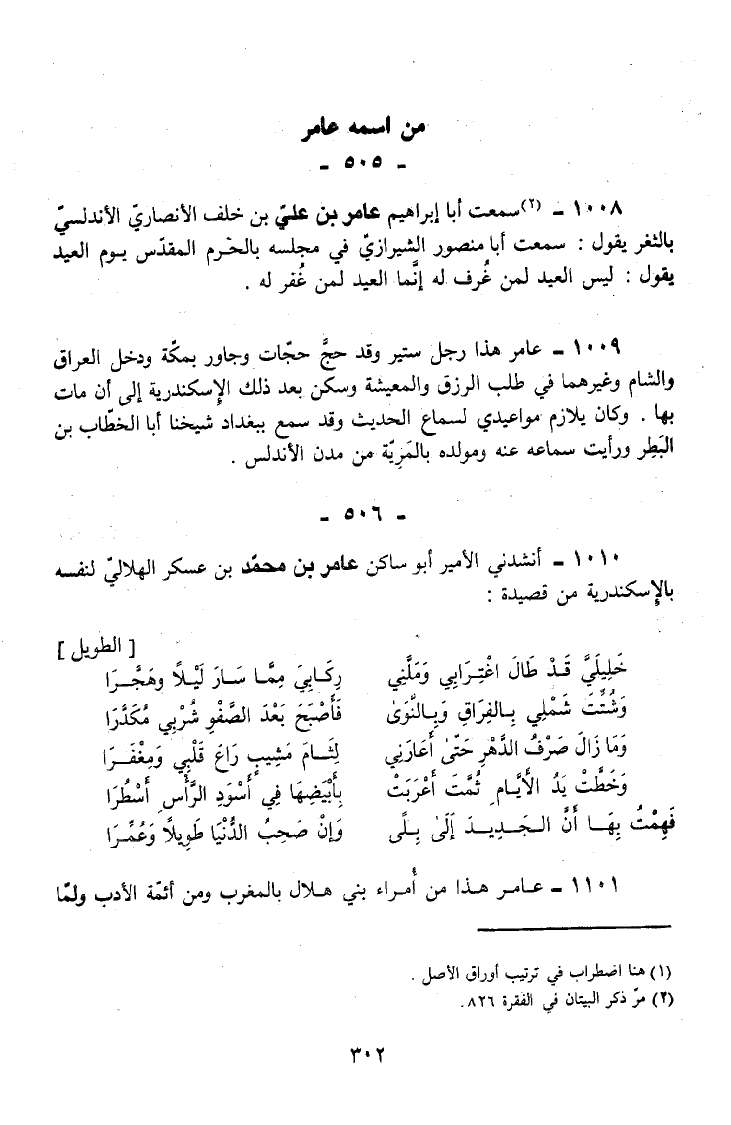 من اسمه عامر
- ٥٠٥ -
١٠٠٨ - (٢) سمعت أبا إبراهيم عامر بن عليّ بن خلف الأنصاريّ الأندلسيّ
بالثغر يقول : سمعت أبا منصور الشيرازيّ في مجلسه بالحَرم المقدّس يوم العيد
يقول : ليس العيد لمن غُرف له إنَّما العيد لمن غُفر له .
١٠٠٩ - عامر هذا رجل ستير وقد حجَّ حجّات وجاور بمكّة ودخل العراق
والشام وغيرهما في طلب الرزق والمعيشة وسكن بعد ذلك الإسكندرية إلى أن مات
بها . وكان يلازم مواعيدي لسماع الحديث وقد سمع ببغداد شيخنا أبا الخطّاب بن
البَطِر ورأيت سماعه عنه ومولده بالمَرِيّة من مدن الأندلس .
- ٥٠٦ -
١٠١٠ - أنشدني الأمير أبو ساكن عامر بن محمّد بن عسكر الهلاليّ لنفسه
بالإسكندرية من قصيدة :
[ الطويل ]
خَلِيلَيَّ قَدْ طَالَ اغْتِرَابِي وَمَلَّنِي رِكَابِيَ مِمَّا سَارَ لَيْلًا وهَجَّرَا
وَشُتِّتَ شَمْلِي بِالفِرَاقِ وَبِالنَّوَىٰ فَأَصْبَحَ بَعْدَ الصَّفْوِ شُرْبِي مُكَدَّرَا
وَمَا زَالَ صَرْفُ الدَّهْرِ حَتَّىٰ أَعَارَنِي لِثَامَ مَشِيبٍ رَاعَ قَلْبِي وَمِغْفَرَا
وَخَطَّتْ يَدُ الأَيَّامِ ثُمَّتَ أَعْرَبَتْ بِأَبْيَضِهَا فِي أَسْوَدِ الرَّأْسِ أَسْطُرَا
فَهِمْتُ بِهَا أَنَّ الجَدِيدَ إِلَىٰ بِلًى وَإِنْ صَحِبَ الدُّنْيَا طَوِيلًا وَعُمِّرَا
١١٠١ - عامر هذا من أُمراء بني هلال بالمغرب ومن أئمّة الأدب ولمّا
(١) هنا اضطراب في ترتيب أوراق الأصل .
(٢) مرّ ذكر البيتان في الفقرة ٨٢٦.
٣٠٢